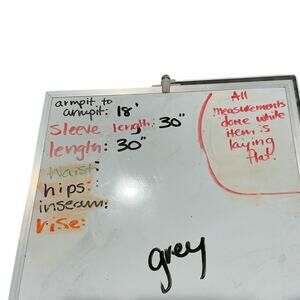 armpit to
armpit: 18'
Sleeve length: 30"
length: 30"
Waist:
hips:
inseam:
rise:
All
measurements
done while
item is
laying
flat.
grey